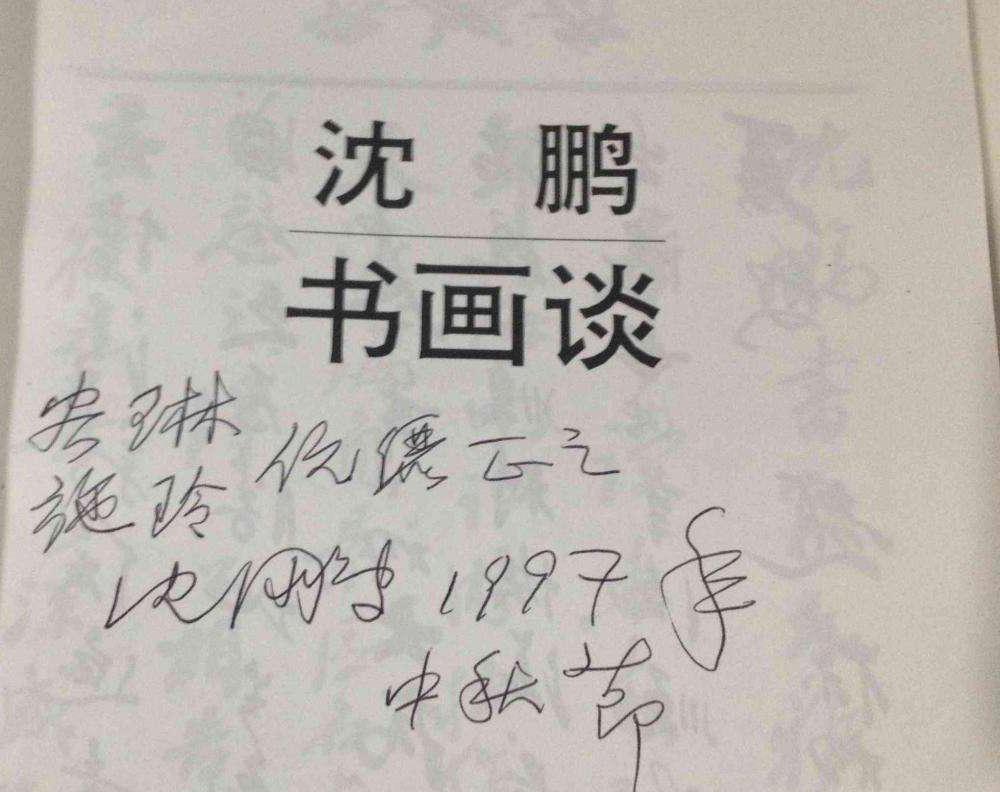 沈 鹏
书画谈
安琳
施玲 伉俪正之
沈鹏 1997年
中秋节